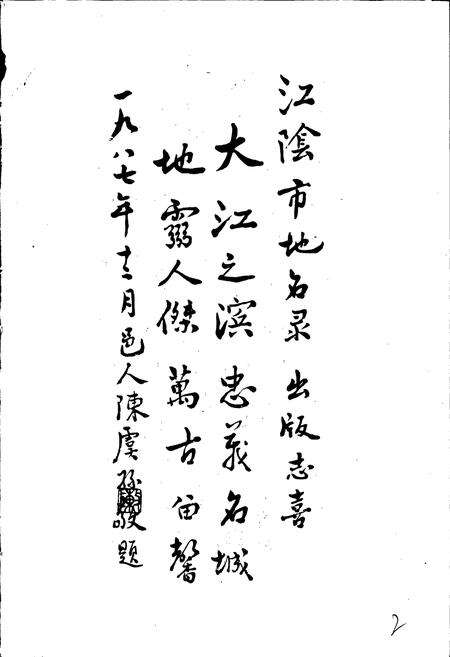 江陰市地名录出版志喜
大江之滨忠义名城
地灵人傑萬古留馨
一九八七年十二月邑人陳虞孫敬題
2